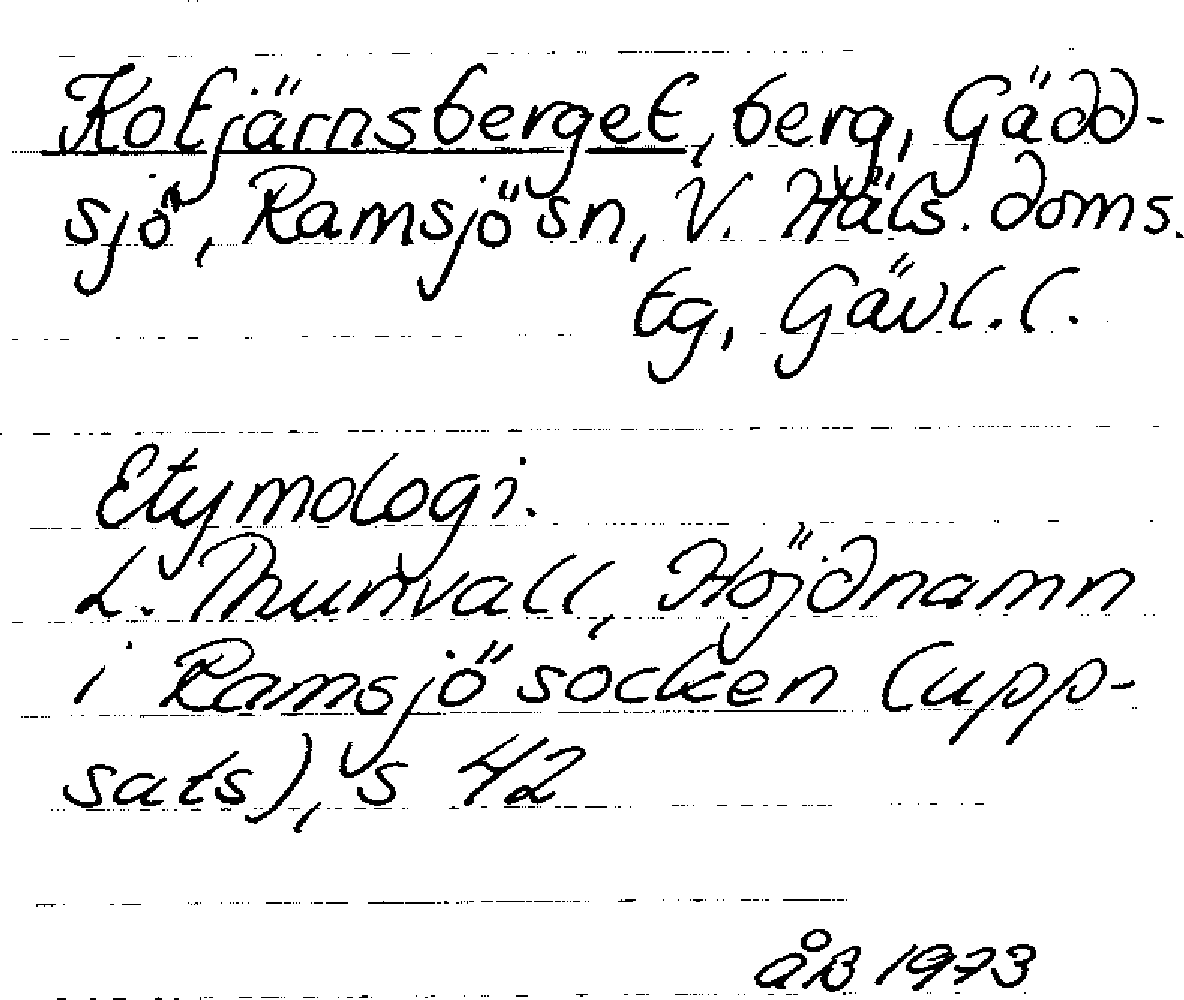 Kotjärnsberget, berg, Gädd-
sjö, Ramsjö sn, V. Häls. doms.
tg, Gävl. l.
Etymologi.
L. Thunvall, Höjdnamn
i Ramsjö socken (upp-
sats), s 42
åB 1973